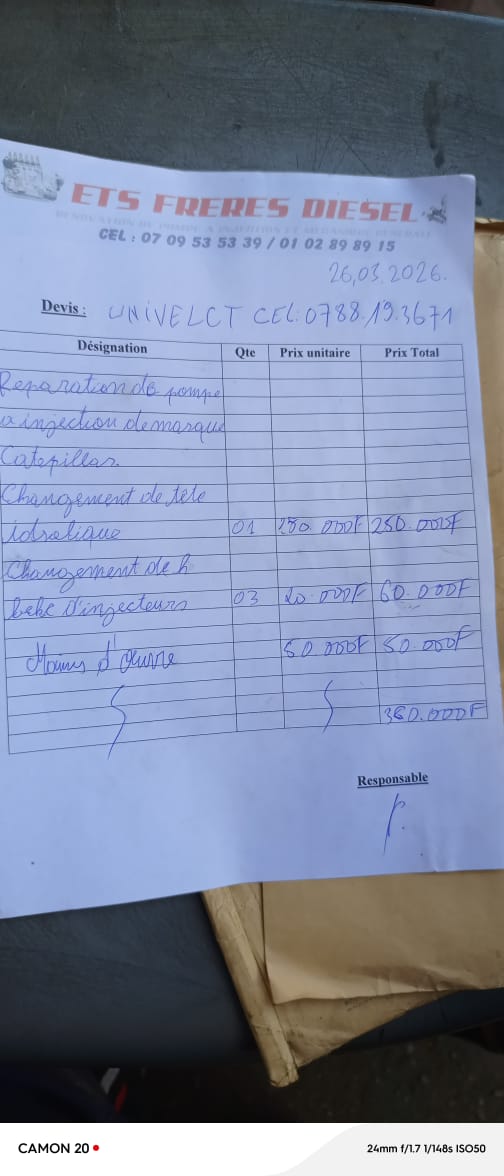 ETS FRERES DIESEL
CEL : 07 09 53 53 39 / 01 02 89 89 15
26,03.2026.
Devis : UNIVELCT CEL:0788.19.3671
Désignation Qte Prix unitaire Prix Total
Reparation de pompe
a injection de marque
Catepillar.
Changement de tête
idrolique 01 250.000F 250.000F
Changement de h
bekc d'injecteurs 03 20.000F 60.000F
Mains d'œuvre 50.000F 50.000F
360.000F
Responsable
CAMON 20
24mm f/1.7 1/148s ISO50